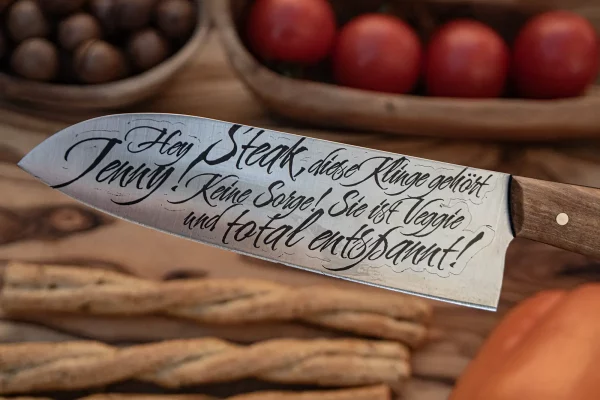 Hey Steak, diese Klinge gehört
Jenny! Keine Sorge! Sie ist Veggie
und total entspannt!